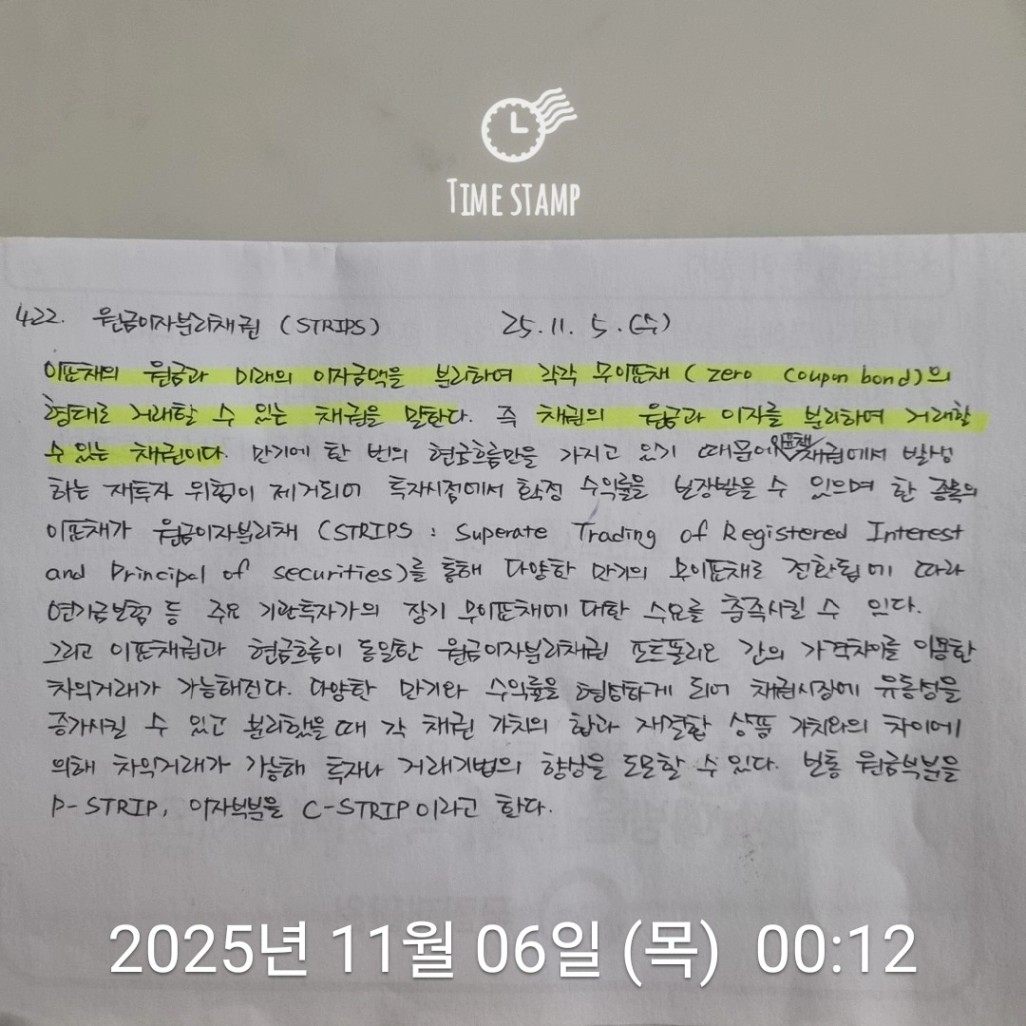 TIME STAMP
422. 원금이자분리채권 (STRIPS) 25.11.5.(수)
이표채의 원금과 미래의 이자금액을 분리하여 각각 무이표채 (Zero Coupun bond)의
형태로 거래할 수 있는 채권을 말한다. 즉 채권의 원금과 이자를 분리하여 거래할
수 있는 채권이다. 만기에 한 번의 현금흐름만을 가지고 있기 때문에 이표채 채권에서 발생
하는 재투자 위험이 제거되어 투자시점에서 확정 수익률을 보장받을 수 있으며 한 종목의
이표채가 원금이자분리채 (STRIPS : Superate Trading of Registered Interest
and Principal of securities)를 통해 다양한 만기의 무이표채로 전환됨에 따라
연기금보험 등 주요 기관투자가의 장기 무이표채에 대한 수요를 충족시킬 수 있다.
그리고 이표채권과 현금흐름이 동일한 원금이자분리채권 포트폴리오 간의 가격차이를 이용한
차익거래가 가능해진다. 다양한 만기와 수익률을 형성하게 되어 채권시장에 유동성을
증가시킬 수 있고 분리했을 때 각 채권 가치의 합과 재결합 상품 가치와의 차이에
의해 차익거래가 가능해 투자나 거래기법의 향상을 도모할 수 있다. 보통 원금부분을
P-STRIP, 이자부분을 C-STRIP이라고 한다.
2025년 11월 06일 (목) 00:12